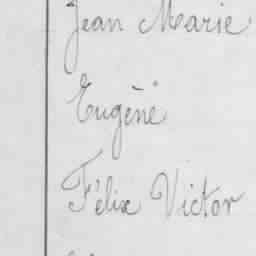 Jean Marie
Eugène
Félix Victor